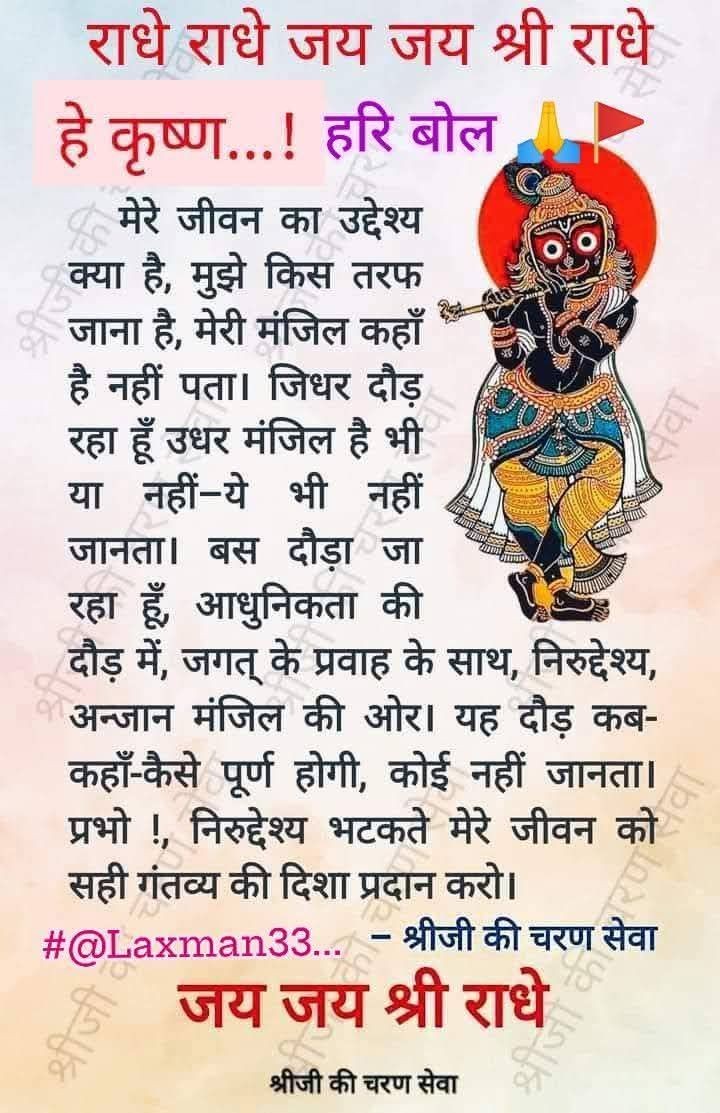 राधे राधे जय जय श्री राधे
हे कृष्ण...! हरि बोल 🙏🚩
मेरे जीवन का उद्देश्य
क्या है, मुझे किस तरफ
जाना है, मेरी मंजिल कहाँ
है नहीं पता। जिधर दौड़
रहा हूँ उधर मंजिल है भी
या नहीं–ये भी नहीं
जानता। बस दौड़ा जा
रहा हूँ, आधुनिकता की
दौड़ में, जगत् के प्रवाह के साथ, निरुद्देश्य,
अन्जान मंजिल की ओर। यह दौड़ कब-
कहाँ-कैसे पूर्ण होगी, कोई नहीं जानता।
प्रभो !, निरुद्देश्य भटकते मेरे जीवन को
सही गंतव्य की दिशा प्रदान करो।
#@Laxman33... – श्रीजी की चरण सेवा
जय जय श्री राधे
श्रीजी की चरण सेवा